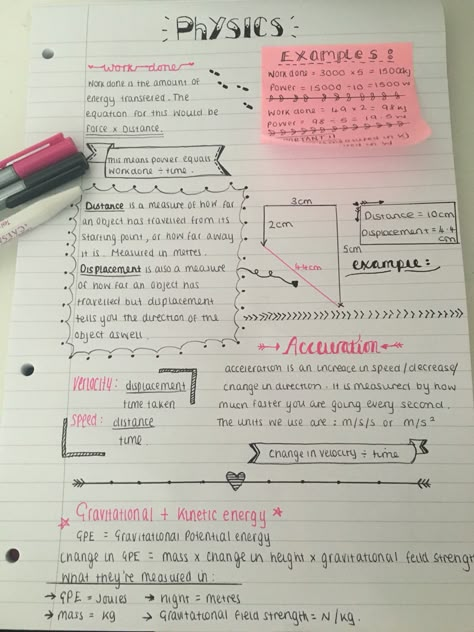 Physics
Work done
Work done is the amount of
energy transferred. The
equation for this would be
Force x Distance.
Examples:
Work done = 3000 x 5 = 1500kg
Power = 15000 ÷ 10 = 1500W
Work done = 49 x 2 = 98kg
Power = 98 ÷ 5 = 19.5W
this means power equals
work done ÷ time.
Distance is a measure of how far
an object has travelled from its
starting point, or how far away
it is. Measured in metres.
Displacement is also a measure
of how far an object has
travelled but displacement
tells you the direction of the
object aswell.
3cm
2cm
4.4cm
5cm
Distance = 10cm
Displacement = 4.4
cm
example:
Acceleration
acceleration is an increase in speed/decrease/
change in direction. it is measured by how
much faster you are going every second.
The units we use are: m/s/s or m/s²
change in velocity ÷ time
Velocity: displacement
time taken
Speed: distance
time.
Gravitational + Kinetic energy
GPE = Gravitational Potential energy
change in GPE = mass x change in height x gravitational feild strength
What they're measured in:
→ GPE = Joules → hight = metres
→ mass = kg → Gravitational field strength = N/kg.